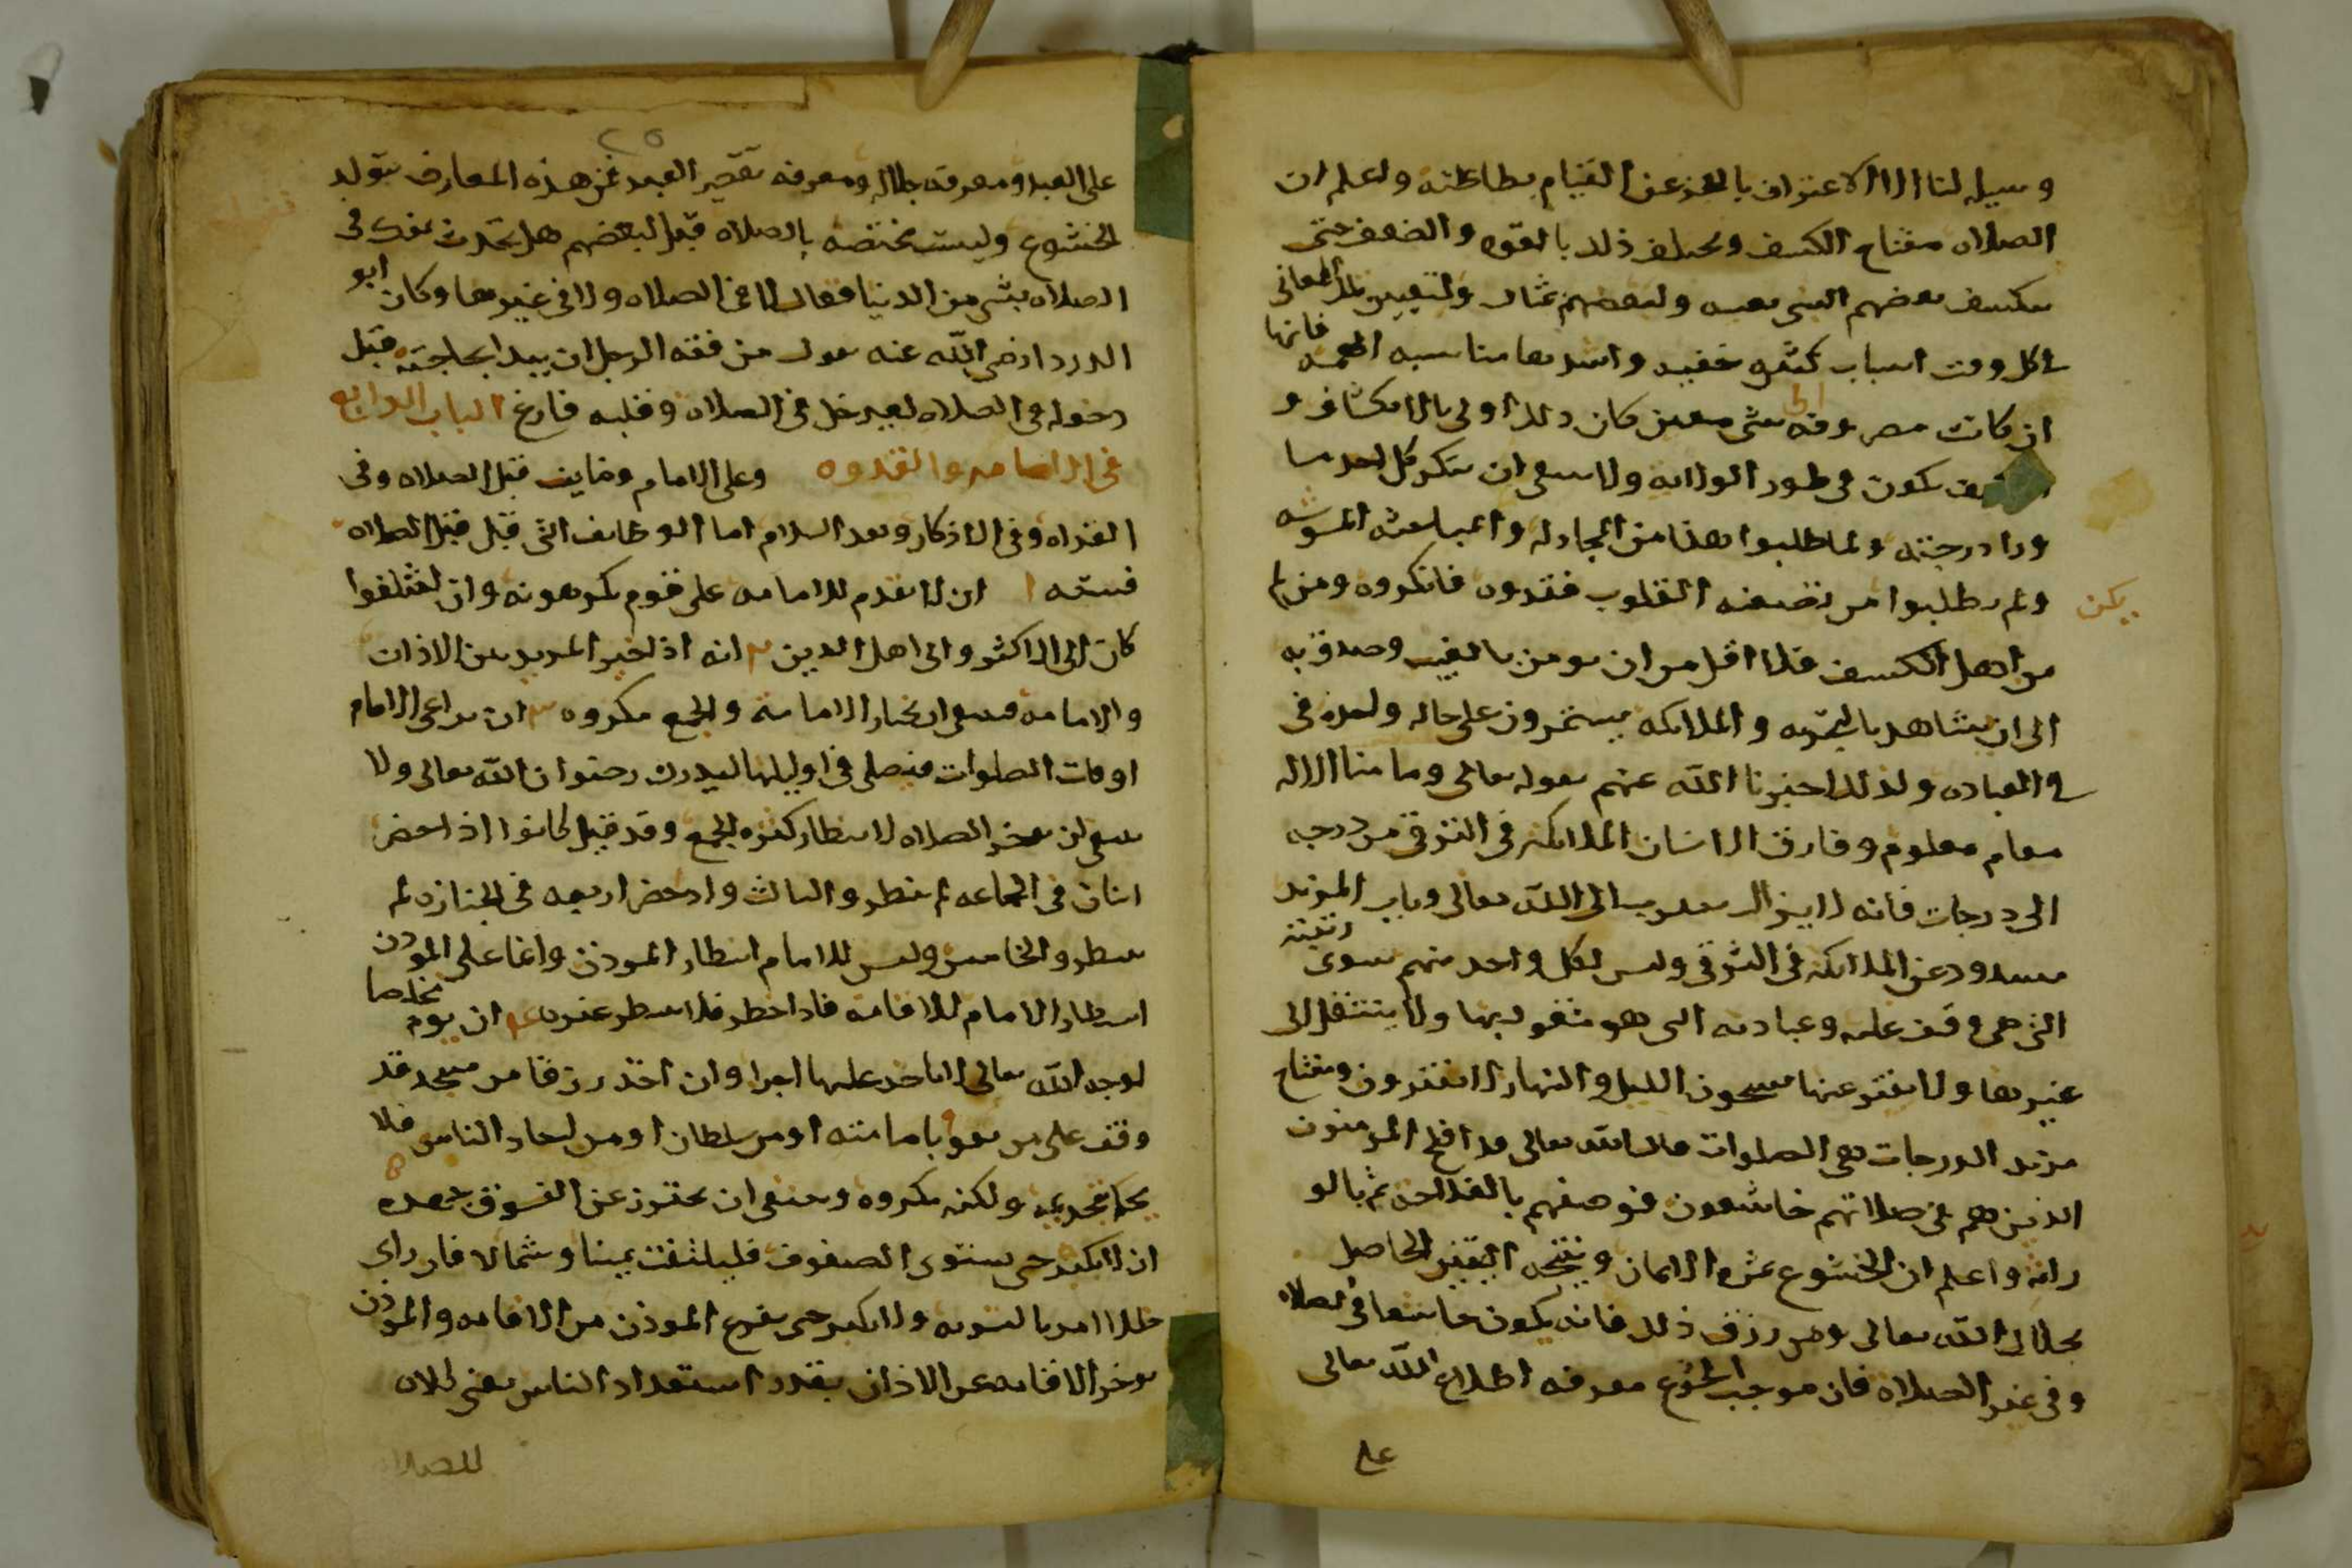 وسيله لنا الا الاعتراف بالعجز عن القيام بطاعته واعلم ان
الصلاه مفتاح الكشف ويختلف ذلك بالقوه والضعف حتى
ينكشف لبعضهم الشى بعينه ولبعضهم بمثال ولتعيين تلك المعانى
فى كل وقت اسباب كثيره خفيه واشدها مناسبه الهمه فانها
ان كانت مصروفه الى شى معين كان ذلك اولى بالانكشاف و
تكون فى طور الولايه ولا ينبغى ان ينكر كل احد ما
ورا درجته ولما طلبوا هذا من المجادله والمباحثه المشوشه
ولم يطلبوا من تصفيه القلوب فقدوه فانكروه ومن لم
يكن
من اهل الكشف فلا اقل من ان يومن بالغيب وصدق به
الى ان يشاهد بالتجربه والملائكه يستمرون على حاله واحده فى
فى العباده ولذلك اخبرنا الله عنهم بقوله تعالى وما منا الا له
مقام معلوم وفارق الانسان الملائكه فى الترقى من درجه
الى درجات فانه لا يزال يتقرب الى الله تعالى وباب المزيد
مسدود عن الملائكه فى الترقى وليس لكل واحد منهم سوى رتبته
التى هى وقف عليه وعبادته التى هو مشغول بها ولا ينتقل الى
غيرها ولا يفتر عنها يسبحون الليل والنهار لا يفترون ومفتاح
مزيد الدرجات هى الصلوات قال الله تعالى قد افلح المومنون
الذين هم فى صلاتهم خاشعون فوصفهم بالفلاحه ثم بالو
راثه واعلم ان الخشوع ثمره الايمان ونتيجه اليقين الحاصل
بجلال الله تعالى ومن رزق ذلك فانه يكون خاشعا فى الصلاه
وفى غير الصلاه فان موجب الخشوع معرفه اطلاع الله تعالى
على
٢٥
على العبد ومعرفه جلاله ومعرفه تقصير العبد فمن هذه المعارف يتولد
الخشوع وليست مختصه بالصلاه قيل لبعضهم هل تحدث نفسك فى
الصلاه بشى من الدنيا فقال لا فى الصلاه ولا فى غيرها وكان ابو
الدردا رضى الله عنه يقول من فقه الرجل ان يبدا بحاجته قبل
دخوله فى الصلاه ليدخل فى الصلاه وقلبه فارغ الباب الرابع
فى الامامه والقدوه وعلى الامام وظايف قبل الصلاه وفى
القراه وفى الاذكار وبعد السلام اما الوظائف التى قبل الصلاه
فسته ا ان لا يتقدم للامامه على قوم يكرهونه وان اختلفوا
كان الى الاكثر والى اهل الدين ٢ انه اذا خير المريد بين الاذان
والامامه فينبغى ان يختار الامامه والجمع مكروه ٣ ان يراعى الامام
اوقات الصلوات فيصلى فى اوايلها ليدرك رضوان الله تعالى ولا
ينبغى ان يوخر الصلاه لانتظار كثره الجمع وقد قيل كانوا اذا حضر
اثنان فى الجماعه لم ينتظروا الثالث واذا حضر اربعه فى الجنازه لم
ينتظروا الخامس وليس للامام انتظار الموذن وانما على الموذن
انتظار الامام للاقامه فاذا حضر فلا ينتظر غيره ٤ ان يوم مخلصا
لوجه الله تعالى لا ياخذ عليها اجرا وان اخذ رزقا من مسجد قد
وقف على من يقوم بامامته او من سلطان او من احاد الناس فلا
يحكم بتحريمه ولكنه مكروه وينبغى ان يحترز عن الفسوق جهده ٥
ان لا يكبر حتى يستوى الصفوف فليلتفت يمينا وشمالا فان راى
خللا امر بالتسويه ولا يكبر حتى يفرغ الموذن من الاقامه والموذن
يوخر الاقامه عن الاذان بقدر استعداد الناس
للصلاه